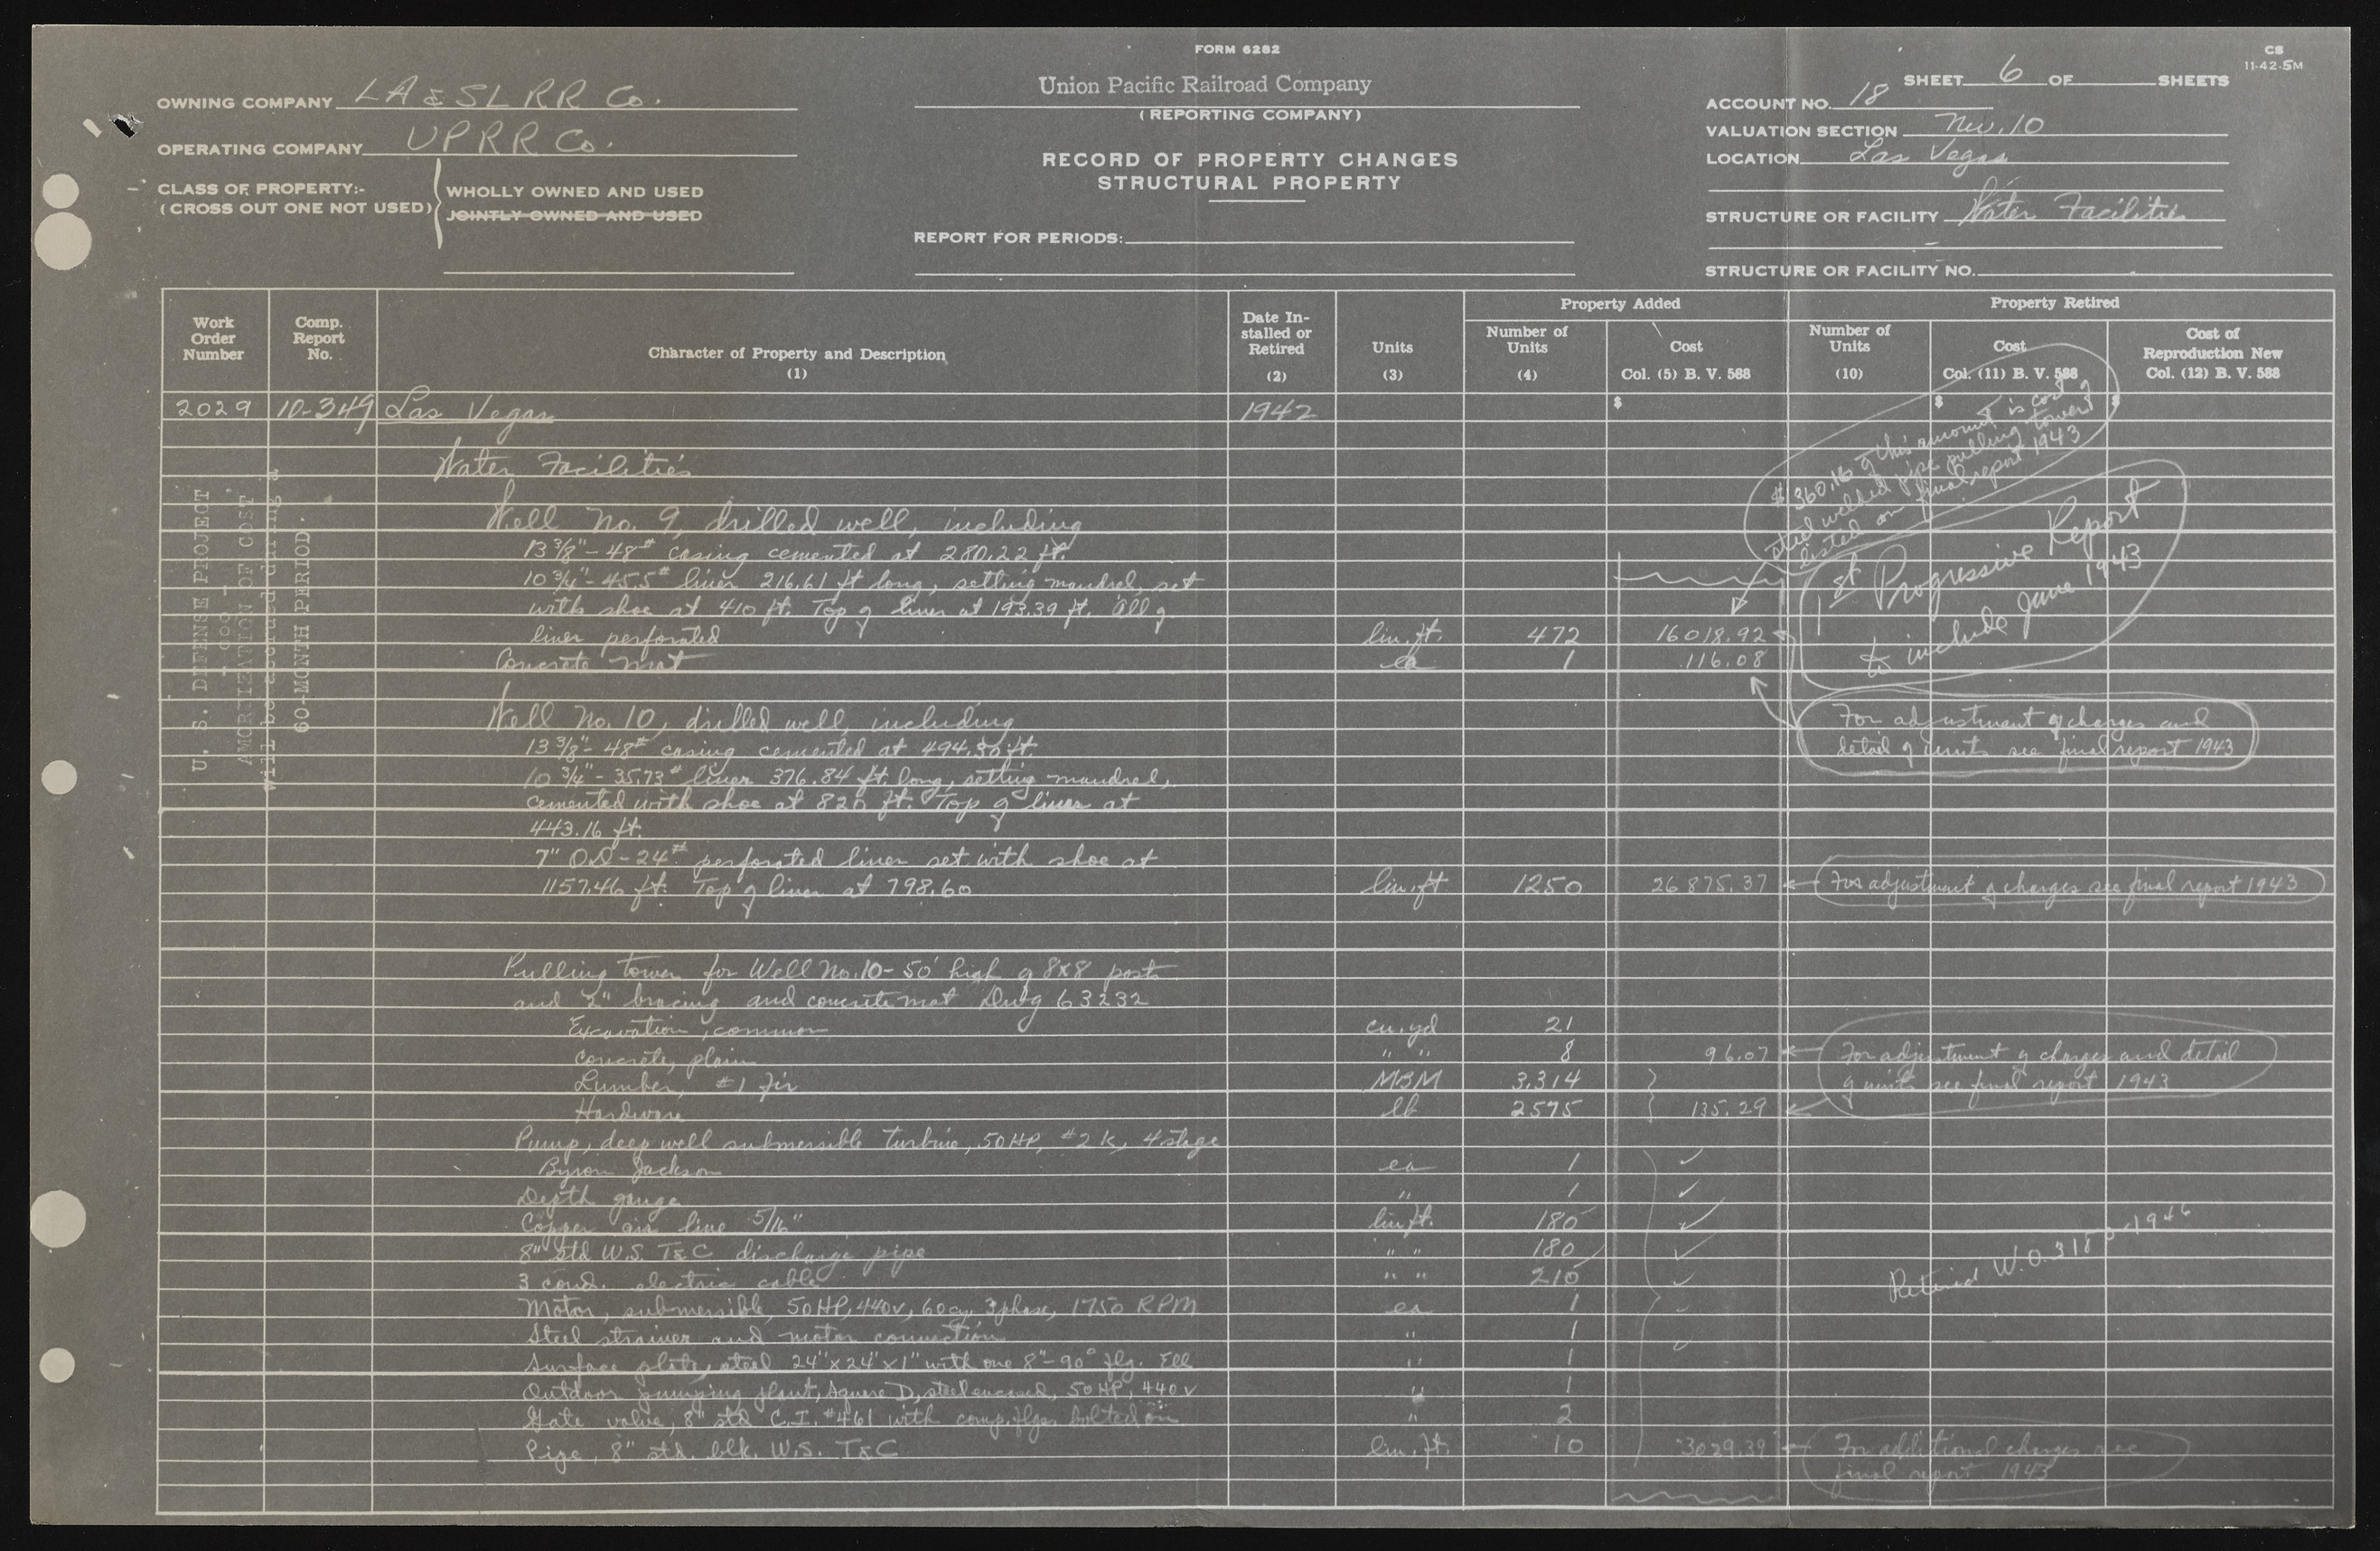 FORM 6282
CS
11-42-5M
Union Pacific Railroad Company
(REPORTING COMPANY)
RECORD OF PROPERTY CHANGES
STRUCTURAL PROPERTY
REPORT FOR PERIODS:
OWNING COMPANY LA & SL RR Co.
OPERATING COMPANY UPRR Co.
CLASS OF PROPERTY:-
(CROSS OUT ONE NOT USED)
WHOLLY OWNED AND USED
JOINTLY OWNED AND USED
SHEET 6 OF SHEETS
ACCOUNT NO. 18
VALUATION SECTION Nev. 10
LOCATION Las Vegas
STRUCTURE OR FACILITY Water Facilities
STRUCTURE OR FACILITY NO.
Work Order Number
Comp. Report No.
Character of Property and Description (1)
Date Installed or Retired (2)
Units (3)
Property Added
Number of Units (4)
Cost Col. (5) B. V. 588
Property Retired
Number of Units (10)
Cost Col. (11) B. V. 588
Cost of Reproduction New Col. (12) B. V. 588
2029 10-349 Las Vegas 1942 $ $ $
Water Facilities
Well No. 9, drilled well, including
13 3/8" - 48# casing cemented at 280.22 ft.
10 3/4" - 45.5# liner 216.61 ft long, setting mandrel, set
with shoe at 410 ft. Top of liner at 193.39 ft. All of
liner perforated lin. ft. 472 16018.92
Concrete mat ea 1 116.08
Well No. 10, drilled well, including
13 3/8" - 48# casing cemented at 494.30 ft.
10 3/4" - 35.73# liner 376.84 ft. long, setting mandrel,
cemented with shoe at 820 ft. Top of liner at
443.16 ft.
7" OD - 24# perforated liner set with shoe at
1157.46 ft. Top of liner at 798.60 lin. ft 1250 26875.37
Pulling tower for Well No. 10 - 50' high of 8x8 posts
and 2" bracing and concrete mat Dwg 63232
Excavation, common cu. yd 21
Concrete, plain " " 8 96.07
Lumber, #1 fir MBM 3.314
Hardware lb 2575 135.29
Pump, deep well submersible turbine, 50 HP, #2 K, 4 stage
Byron Jackson ea 1 ✓
Depth gauge " 1 ✓
Copper air line 5/16" lin. ft. 180 ✓
8" std W.S. T&C discharge pipe " " 180 ✓
3 cond. electric cable " " 210 ✓
Motor, submersible, 50 HP, 440v, 60cy, 3 phase, 1750 RPM ea 1 ✓
Steel strainer and motor connection " 1 ✓
Surface plate, steel 24" x 24" x 1" with one 8" - 90° flg. Ell " 1
Outdoor pumping plant, Square D, steel encased, 50 HP, 440 v " 1
Gate valve, 8" std C.I. #461 with comp. flgs bolted on " 2
Pipe, 8" std. blk. W.S. T&C lin. ft. 10 3029.39
U. S. DEFENSE PROJECT
AMORTIZATION OF COST
will be accrued during a
60-MONTH PERIOD.
$360.16 of this amount is cost of
steel welded pipe pulling tower
listed on final report 1943
1st Progressive Report
to include June 1943
For adjustment of charges and
detail of units see final report 1943
For adjustment of charges see final report 1943
For adjustment of charges and detail
of units see final report 1943
Retired W.O. 1946
For additional charges see
final report 1943